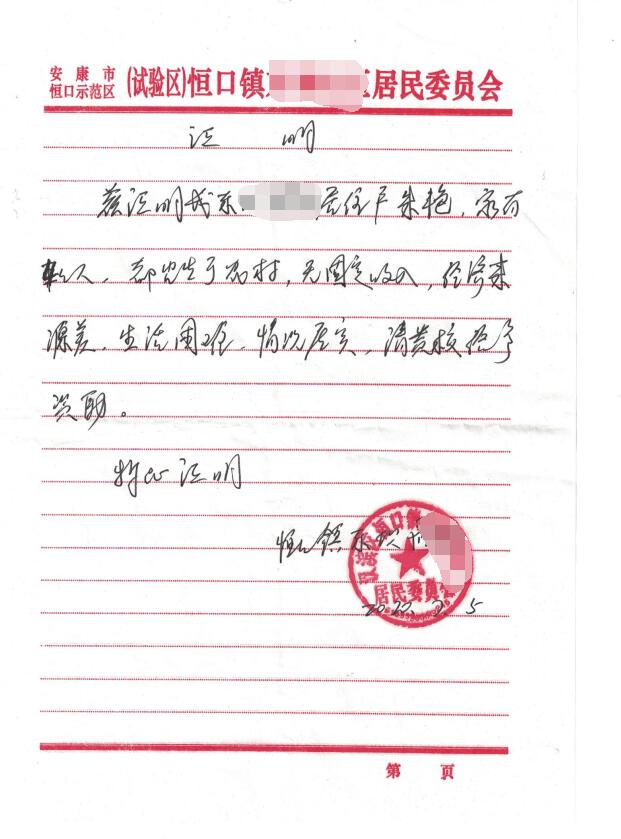 安康市
恒口示范区
(试验区)恒口镇 居民委员会
证 明
兹证明我东 居住户朱艳,家有
人,都出生于农村,无固定收入,经济来
源差,生活困难,情况属实,请贵校给予
资助。
特此证明
恒口镇东
居民委员会
第 页